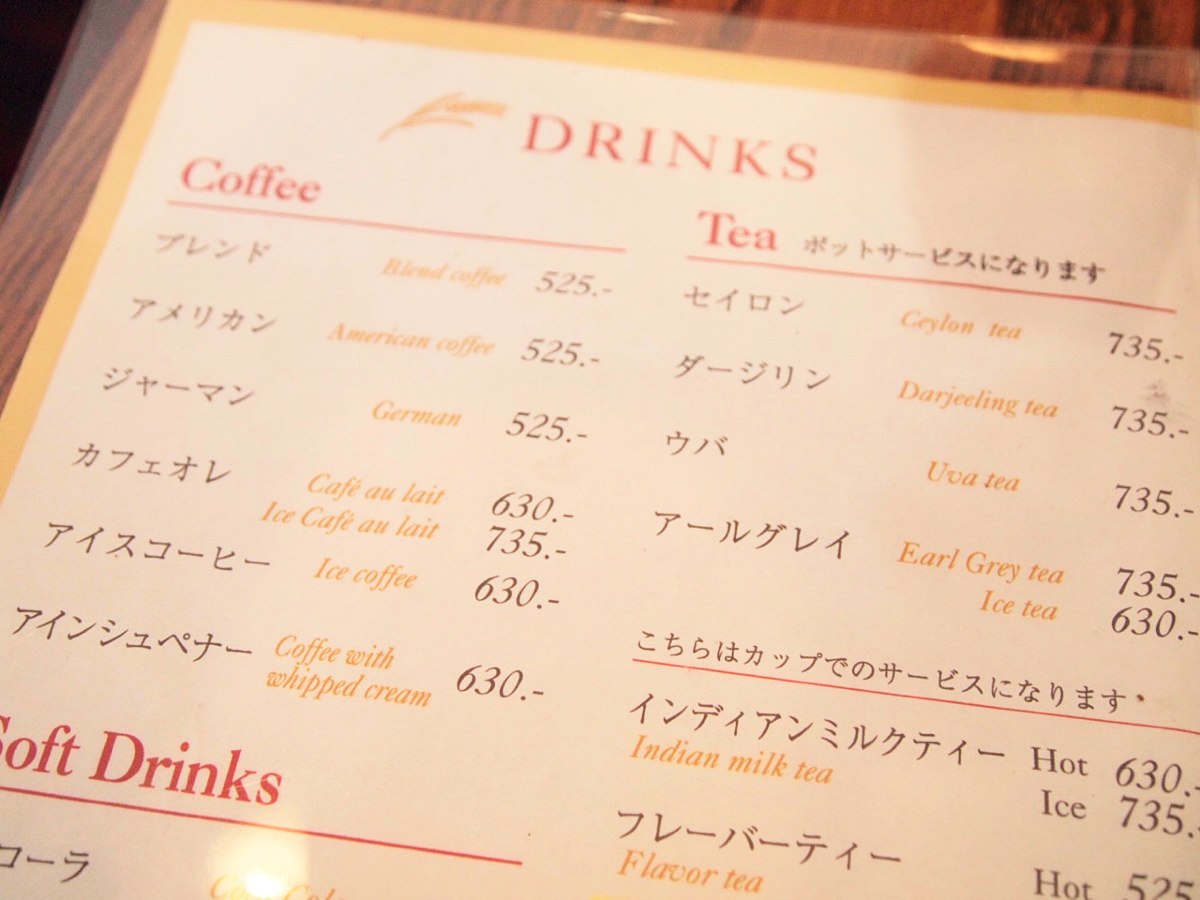 DRINKS
Coffee
ブレンド Blend coffee 525.-
アメリカン American coffee 525.-
ジャーマン German 525.-
カフェオレ Café au lait 630.-
Ice Café au lait 735.-
アイスコーヒー Ice coffee 630.-
アインシュペナー Coffee with
whipped cream 630.-
Soft Drinks
コーラ
Tea ポットサービスになります
セイロン Ceylon tea 735.-
ダージリン Darjeeling tea 735.-
ウバ Uva tea 735.-
アールグレイ Earl Grey tea 735.-
Ice tea 630.-
こちらはカップでのサービスになります
インディアンミルクティー Hot 630.-
Indian milk tea Ice 735.-
フレーバーティー
Flavor tea Hot 525